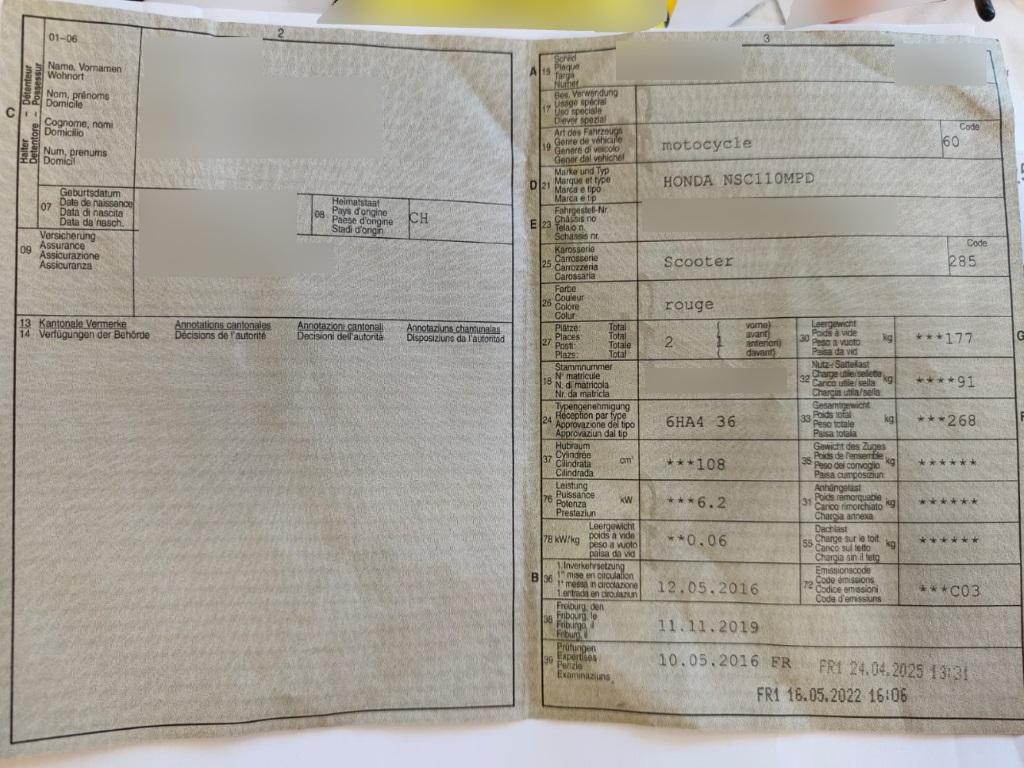 2
C
Halter - Détenteur
Detentore - Possessur
01-06
Name, Vornamen
Wohnort
Nom, prénoms
Domicile
Cognome, nomi
Domicilio
Num, prenums
Domicil
07
Geburtsdatum
Date de naissance
Data di nascita
Data da nasch.
08
Heimatstaat
Pays d'origine
Paese d'origine
Stadi d'origin
CH
09
Versicherung
Assurance
Assicurazione
Assicuranza
13 Kantonale Vermerke Annotations cantonales Annotazioni cantonali Annotaziuns chantunalas
14 Verfügungen der Behörde Décisions de l'autorité Decisioni dell'autorità Disposiziuns da l'autoritad
3
A
15
Schild
Plaque
Targa
Numer
17
Bes. Verwendung
Usage spécial
Uso speciale
Diever spezial
19
Art des Fahrzeugs
Genre de véhicule
Genere di veicolo
Gener dal vehichel
motocycle
Code
60
D 21
Marke und Typ
Marque et type
Marca e tipo
Marca e tip
HONDA NSC110MPD
E 23
Fahrgestell-Nr.
Châssis no
Telaio n.
Schassis nr.
25
Karosserie
Carrosserie
Carrozzeria
Carossaria
Scooter
Code
285
26
Farbe
Couleur
Colore
Colur
rouge
27
Plätze: Total
Places: Total
Posti: Totale
Plazs: Total
2
( vorne)
( avant)
( anteriori)
( davant)
1
30
Leergewicht
Poids à vide
Peso a vuoto
Paisa da vid
kg
***177
G
18
Stammnummer
N° matricule
N. di matricola
Nr. da matricla
32
Nutz-/Sattellast
Charge utile/sellette
Carico utile/sella
Chargia utila/sella
kg
****91
24
Typengenehmigung
Réception par type
Approvazione del tipo
Approvaziun dal tip
6HA4 36
33
Gesamtgewicht
Poids total
Peso totale
Paisa totala
kg
***268
F
37
Hubraum
Cylindrée
Cilindrata
Cilindrada
cm³
***108
35
Gewicht des Zuges
Poids de l'ensemble
Peso del convoglio
Paisa cumposiziun
kg
******
76
Leistung
Puissance
Potenza
Prestaziun
kW
***6.2
31
Anhängelast
Poids remorquable
Carico rimorchiato
Chargia annexa
kg
******
78 kW/kg
Leergewicht
poids à vide
peso a vuoto
paisa da vid
**0.06
55
Dachlast
Charge sur le toit
Carico sul tetto
Chargia sin il tetg
kg
******
B 36
1. Inverkehrsetzung
1re mise en circulation
1a messa in circolazione
1. entrada en circulaziun
12.05.2016
72
Emissionscode
Code émissions
Codice emissioni
Code d'emissiuns
***C03
38
Freiburg, den
Fribourg, le
Friburgo, il
Friburg, il
11.11.2019
39
Prüfungen
Expertises
Perizie
Examinaziuns
10.05.2016 FR FR1 24.04.2025 13:31
FR1 16.05.2022 16:06